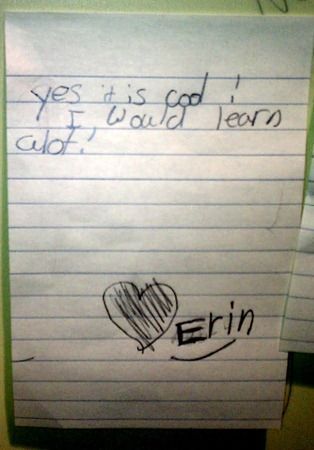 yes it is cool !
I would learn
alot!
Erin